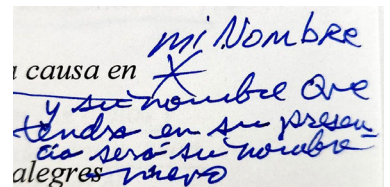 mi Nombre
causa en X
y su nombre que
tendra en su presen-
cia será su nombre
alegres nuevo